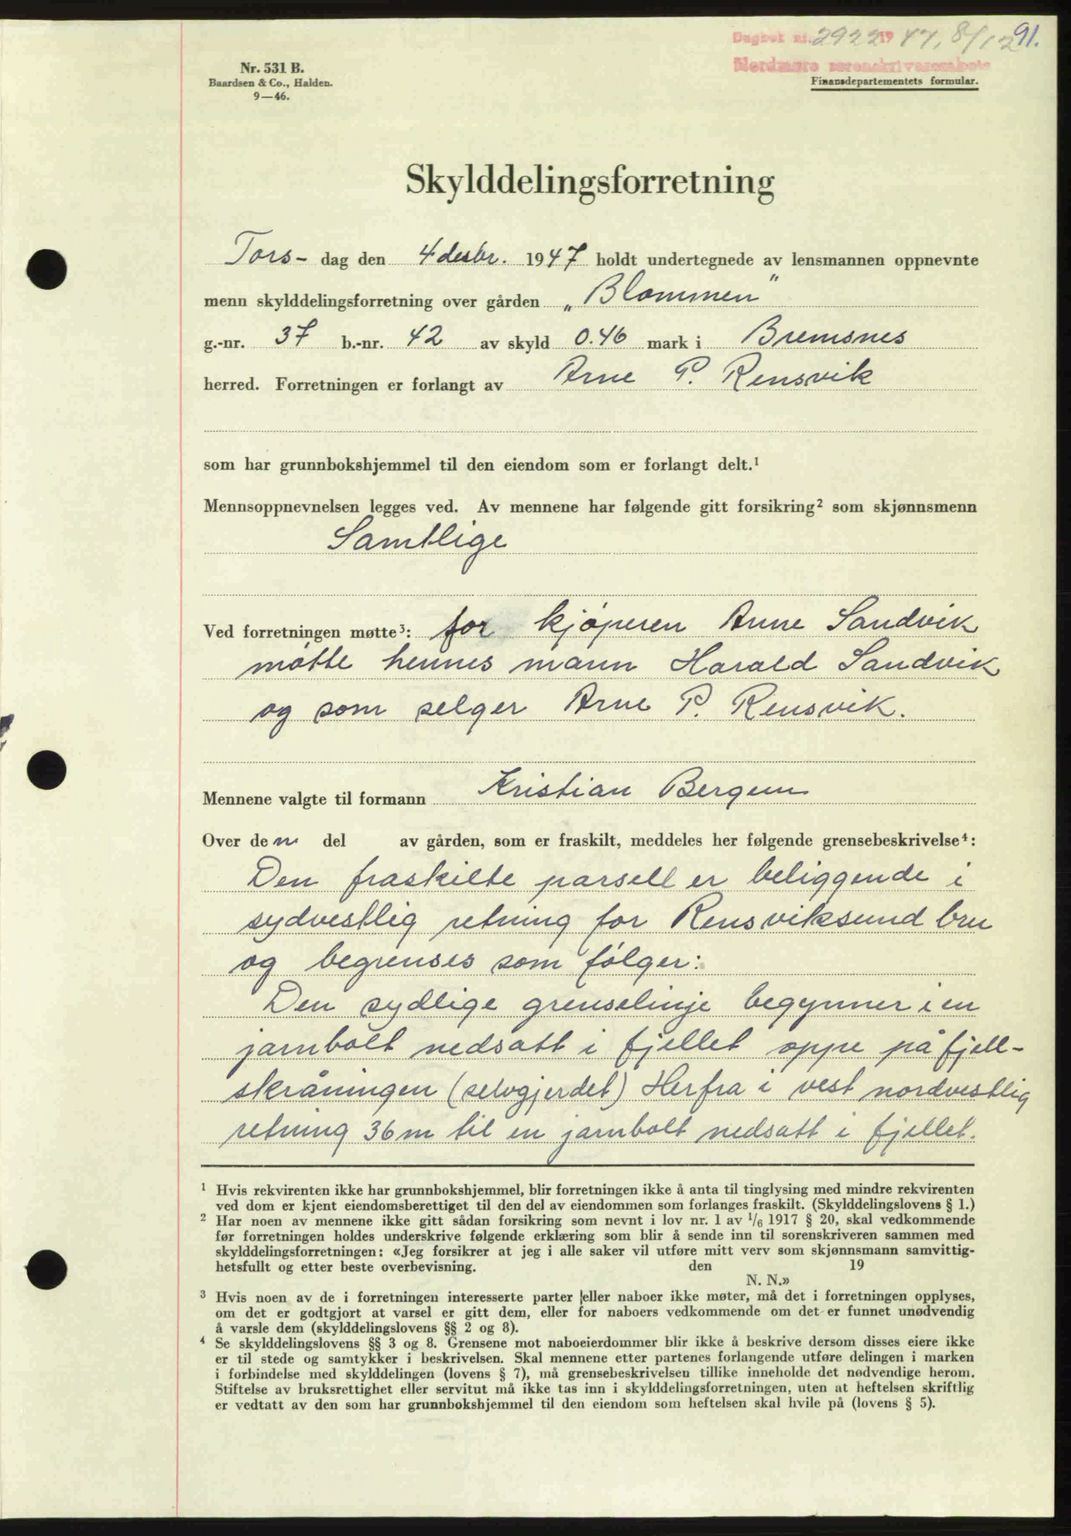 Dagbok nr. 2922 19 47, 8/12 91.
Nordmøre sorenskriverembete
Nr. 531 B.
Baardsen & Co., Halden.
9—46.
Finansdepartementets formular.
Skylddelingsforretning
Tors- dag den 4 desbr. 1947 holdt undertegnede av lensmannen oppnevnte
menn skylddelingsforretning over gården „Blommen”
g.-nr. 37 b.-nr. 42 av skyld 0.46 mark i Bremsnes
herred. Forretningen er forlangt av Arne P. Rensvik
som har grunnbokshjemmel til den eiendom som er forlangt delt.¹
Mennsoppnevnelsen legges ved. Av mennene har følgende gitt forsikring² som skjønnsmenn
Samtlige
Ved forretningen møtte³: for kjøperen Anne Sandvik
møtte hennes mann Harald Sandvik
og som selger Arne P. Rensvik.
Mennene valgte til formann Kristian Bergem
Over den del av gården, som er fraskilt, meddeles her følgende grensebeskrivelse⁴:
Den fraskilte parsell er beliggende i
sydvestlig retning for Rensviksund bru
og begrenses som følger:
Den sydlige grenselinje begynner i en
jarnbolt nedsatt i fjellet oppe på fjell-
skråningen (selvgjerdet) Herfra i vest nordvestlig
retning 36 m til en jarnbolt nedsatt i fjellet.
¹ Hvis rekvirenten ikke har grunnbokshjemmel, blir forretningen ikke å anta til tinglysing med mindre rekvirenten
ved dom er kjent eiendomsberettiget til den del av eiendommen som forlanges fraskilt. (Skylddelingslovens § 1.)
² Har noen av mennene ikke gitt sådan forsikring som nevnt i lov nr. 1 av 1/6 1917 § 20, skal vedkommende
før forretningen holdes underskrive følgende erklæring som blir å sende inn til sorenskriveren sammen med
skylddelingsforretningen: «Jeg forsikrer at jeg i alle saker vil utføre mitt verv som skjønnsmann samvittig-
hetsfullt og etter beste overbevisning. den 19
N. N.»
³ Hvis noen av de i forretningen interesserte parter eller naboer ikke møter, må det i forretningen opplyses,
om det er godtgjort at varsel er gitt dem, eller for naboers vedkommende om det er funnet unødvendig
å varsle dem (skylddelingslovens §§ 2 og 8).
⁴ Se skylddelingslovens §§ 3 og 8. Grensene mot naboeierdommer blir ikke å beskrive dersom disses eiere ikke
er til stede og samtykker i beskrivelsen. Skal mennene etter partenes forlangende utføre delingen i marken
i forbindelse med skylddelingen (lovens § 7), må grensebeskrivelsen tillike inneholde det nødvendige herom.
Stiftelse av bruksrettighet eller servitut må ikke tas inn i skylddelingsforretningen, uten at heftelsen skriftlig
er vedtatt av den som har grunnbokshjemmel til den eiendom som heftelsen skal hvile på (lovens § 5).